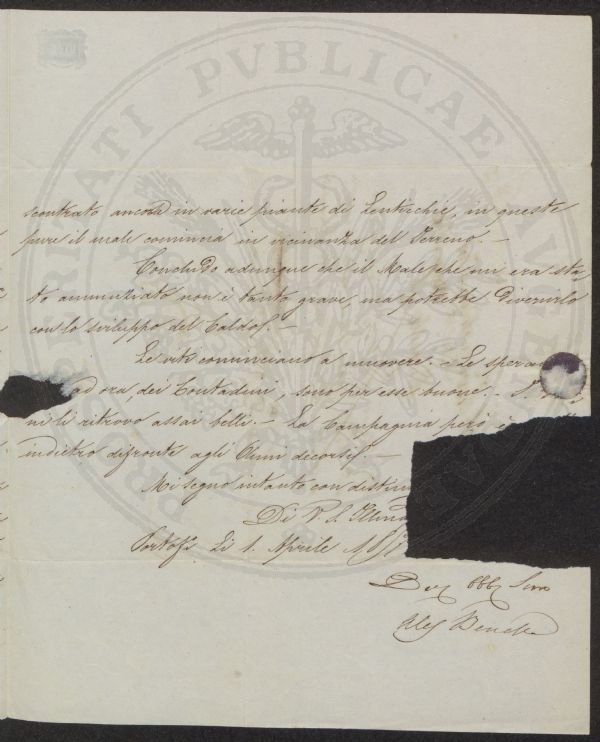 PROSPERITATI PVBLICAE AVGENDAE
scontrato ancora in varie piante di Lenticchie, in queste
pure il male comincia in vicinanza del Terreno. -
Concludo adunque che il Male che mi era sta-
to annunziato non è tanto grave, ma potrebbe divenirlo
con lo sviluppo del Caldo. -
Le viti cominciano a muovere. - Le speran
ad ora dei Contadini, sono per esse buone. -
ni li ritrovo assai belli. - La Campagna però è
indietro difronte agli Anni decorsi. -
Mi segno intanto con distin
Di V. S. Illma
Li 1. Aprile 18
Dev Obb Serv
Ales